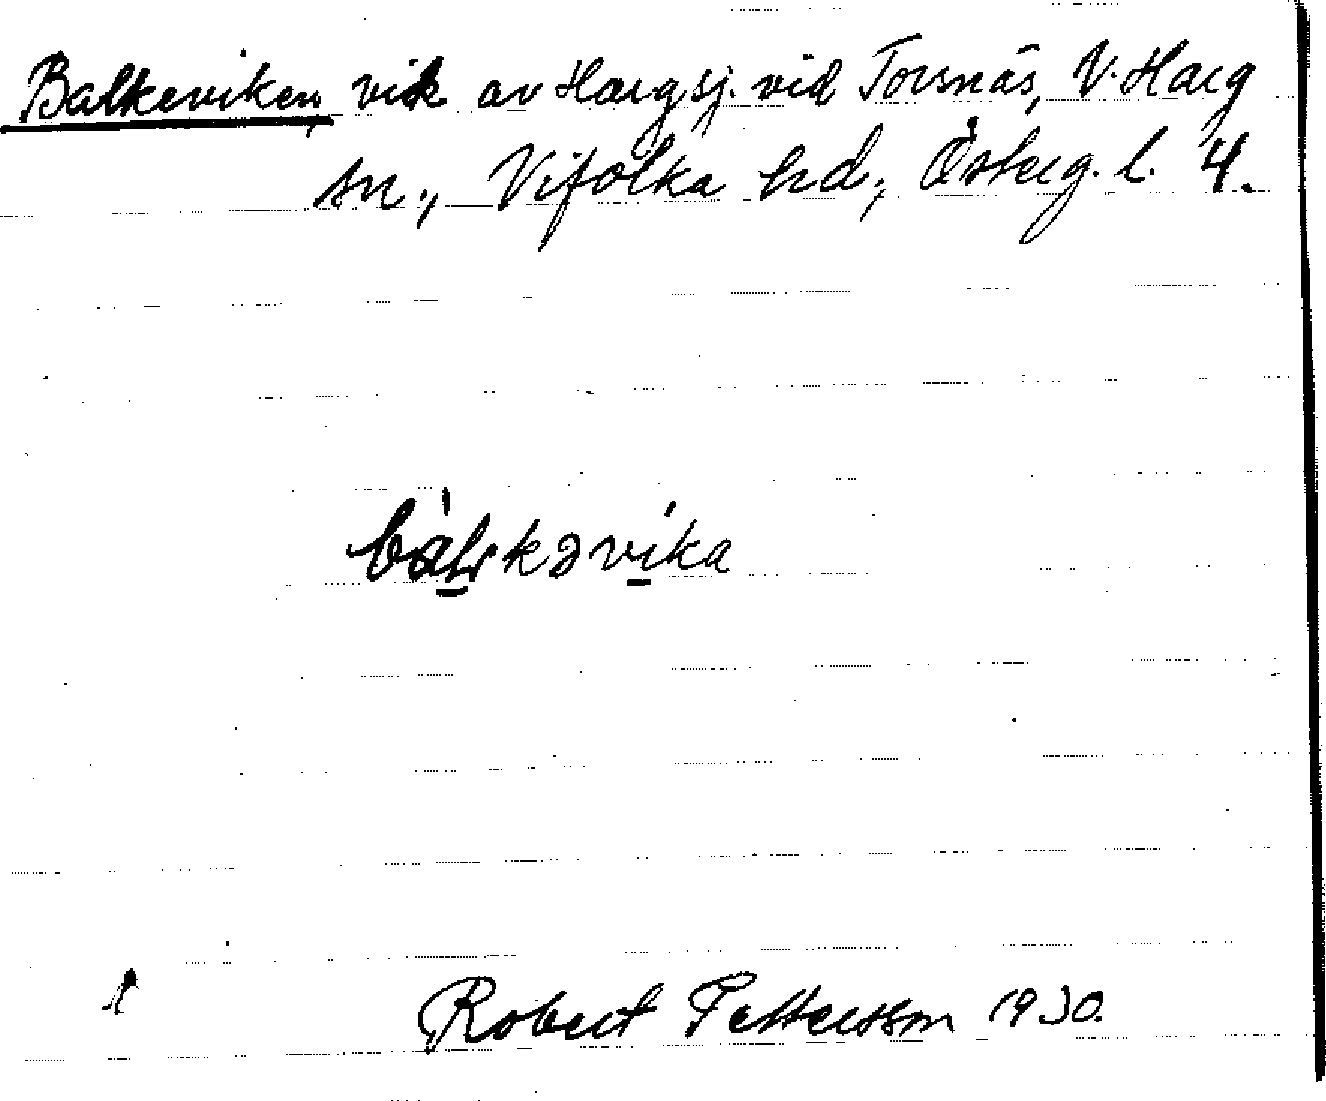 Balkeviken, vik av Hargsj. vid Torsnäs, V. Harg
sn., Vifolka hd, Österg. l. 4.
Robert Pettersson 1930.